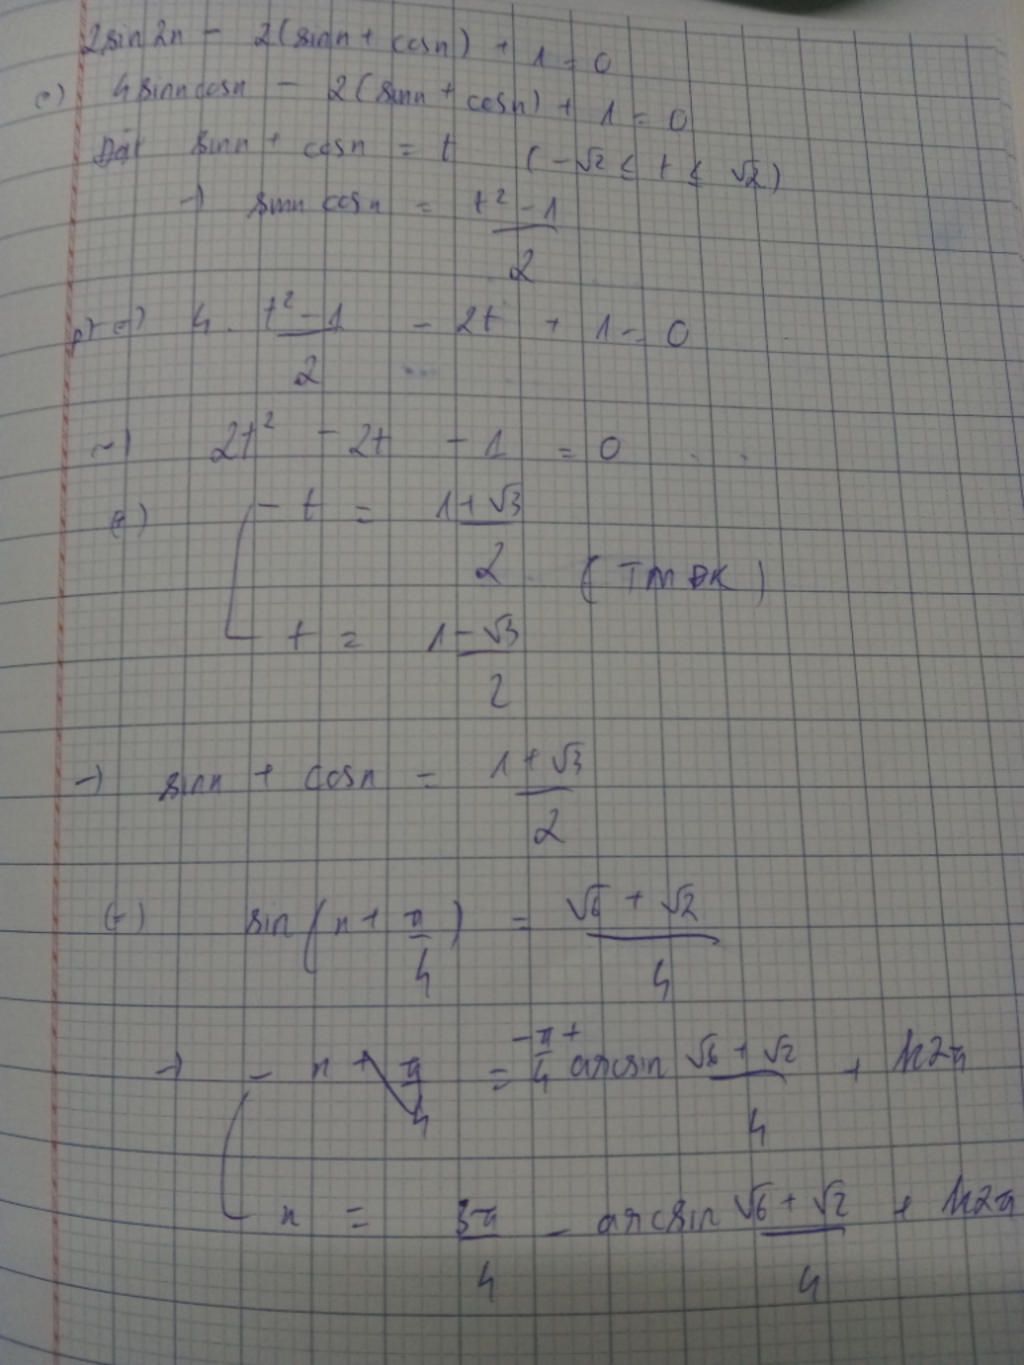 2sin2x - 2(sinx + cosx) + 1 = 0
(=) 4sinxcosx - 2(sinx + cosx) + 1 = 0
Đặt sinx + cosx = t (-√2 ≤ t ≤ √2)
→ sinxcosx = (t² - 1)/2
pt (=) 4 . (t² - 1)/2 - 2t + 1 = 0
(=) 2t² - 2t - 1 = 0
(=) [ t = (1 + √3)/2
(TMĐK)
t = (1 - √3)/2
→ sinx + cosx = (1 + √3)/2
(=) sin(x + π/4) = (√6 + √2)/4
→ [ x = -π/4 + arcsin (√6 + √2)/4 + k2π
x = 3π/4 - arcsin (√6 + √2)/4 + k2π